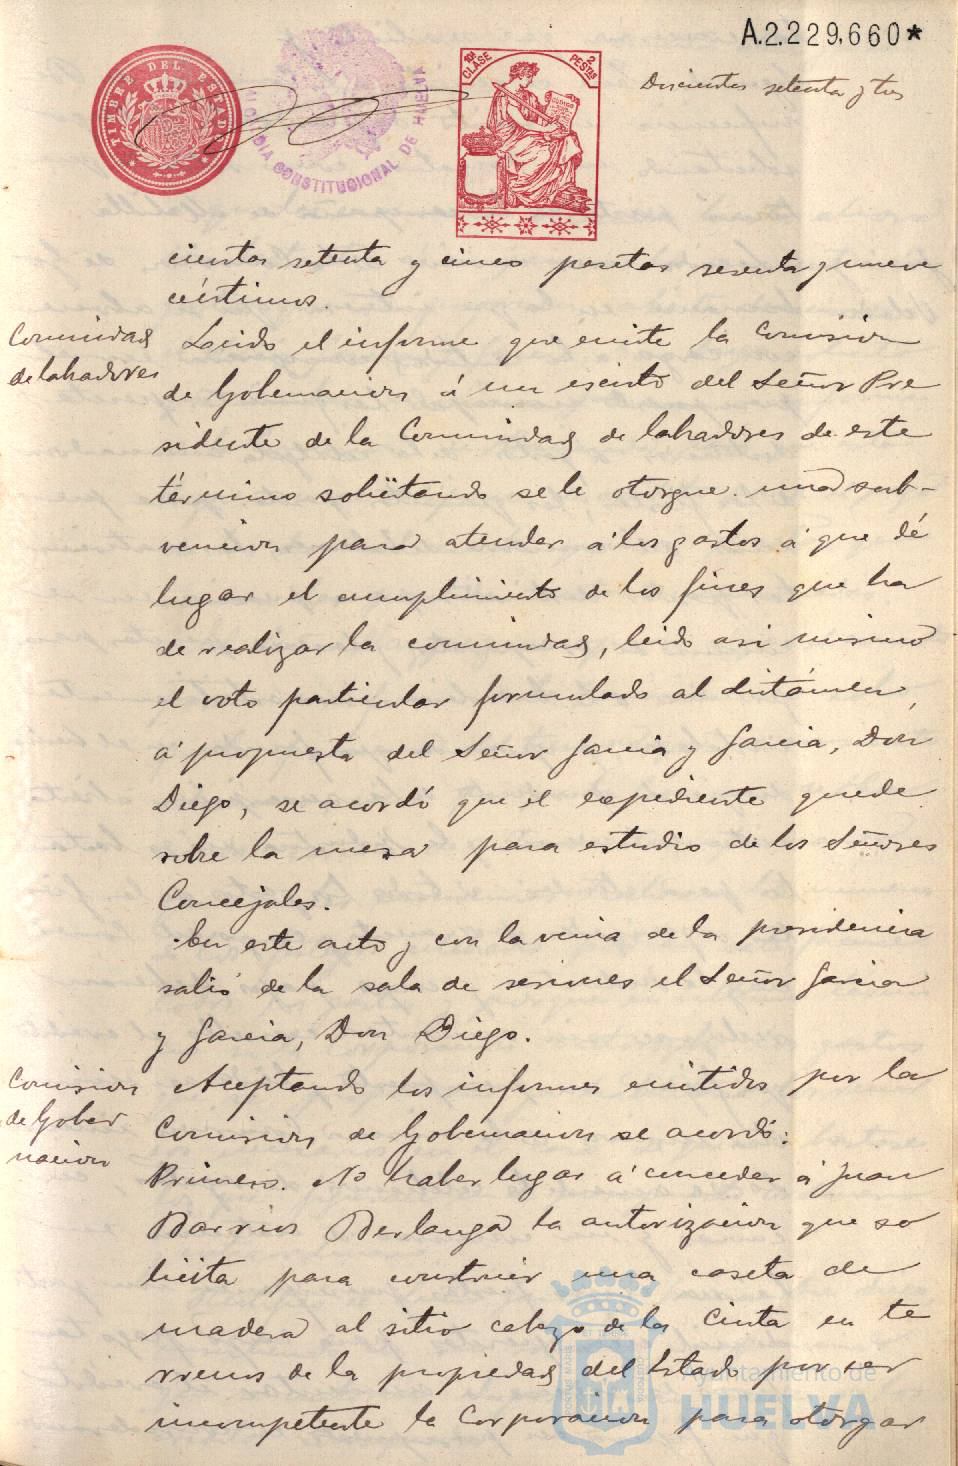 A.2.229,660*
Doscientos setenta y tres
TIMBRE DEL ESTADO
ALCALDIA CONSTITUCIONAL DE HUELVA
10ª CLASE
2 PESTAS
CODIGO
cientas setenta y cinco pesetas sesenta y nueve
céntimos.
Comunidad
de labradores
Leido el informe que emite la Comision
de Gobernacion á un escrito del Señor Pre
sidente de la Comunidad de labradores de este
término solicitando se le otorgue una sub-
vencion para atender á los gastos á que dé
lugar el cumplimiento de los fines que ha
de realizar la comunidad, leido asi mismo
el voto particular formulado al dictámen,
á propuesta del Señor Garcia y Garcia, Don
Diego, se acordó que el expediente quede
sobre la mesa para estudio de los Señores
Concejales.
En este acto y con la venia de la presidencia
salió de la sala de sesiones el Señor Garcia
y Garcia, Don Diego.
Comision
de Gober
nacion
Aceptando los informes emitidos por la
Comision de Gobernacion se acordó:
Primero. No haber lugar á conceder á Juan
Barrios Berlanga la autorizacion que so
licita para construir una caseta de
madera al sitio cabezo de la Cinta en te
rrenos de la propiedad del Estado por ser
incompetente la Corporacion para otorgar
Ayuntamiento de
HUELVA